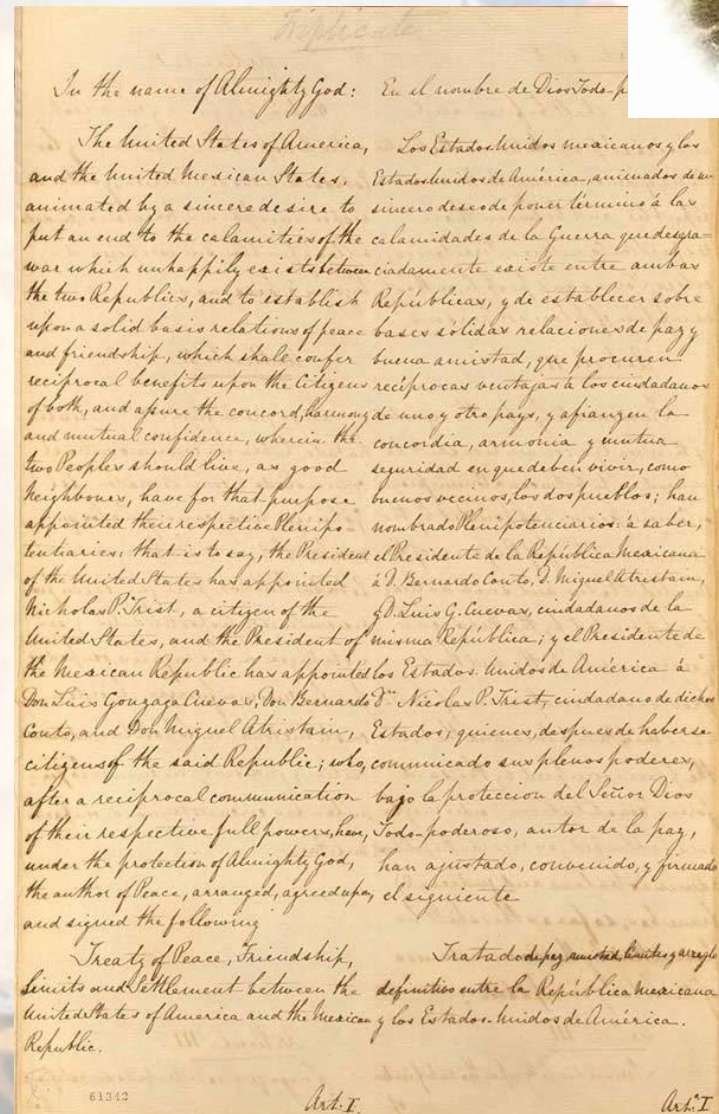 Triplicate
In the name of Almighty God:
The United States of America,
and the United Mexican States,
animated by a sincere desire to
put an end to the calamities of the
war which unhappily exists between
the two Republics, and to establish
upon a solid basis relations of peace
and friendship, which shall confer
reciprocal benefits upon the Citizens
of both, and assure the concord, harmony
and mutual confidence, wherein the
two Peoples should live, as good
Neighbours, have for that purpose
appointed their respective Plenipo-
tentiaries: that is to say, the President
of the United States has appointed
Nicholas P. Trist, a citizen of the
United States, and the President of
the Mexican Republic has appointed
Don Luis Gonzaga Cuevas, Don Bernardo
Couto, and Don Miguel Atristain,
citizens of the said Republic; who,
after a reciprocal communication
of their respective full powers, have,
under the protection of Almighty God,
the author of Peace, arranged, agreed upon,
and signed the following
Treaty of Peace, Friendship,
Limits and Settlement between the
United States of America and the Mexican
Republic.
61342
Art. I
En el nombre de Dios Todo-p
Los Estados Unidos mexicanos y los
Estados Unidos de América, animados de un
sincero deseo de poner término á las
calamidades de la Guerra que desgra=
ciadamente existe entre ambas
Repúblicas, y de establecer sobre
bases sólidas relaciones de paz y
buena amistad, que procuren
recíprocas ventajas á los ciudadanos
de uno y otro pays, y afianzen la
concordia, armonia y mutua
seguridad en que deben vivir, como
buenos vecinos, los dos pueblos; han
nombrado Plenipotenciarios: á saber,
el Presidente de la República Mexicana
á D. Bernardo Couto, D. Miguel Atristain,
y D. Luis G. Cuevas, ciudadanos de la
misma República; y el Presidente de
los Estados Unidos de América á
Dn. Nicolas P. Trist, ciudadano de dichos
Estados; quienes, despues de haberse
comunicado sus plenos poderes,
bajo la proteccion del Señor Dios
Todo-poderoso, autor de la paz,
han ajustado, convenido, y firmado
el siguiente
Tratado de paz, amistad, límites y arreglo
definitivo entre la República Mexicana
y los Estados Unidos de América.
Arto. I